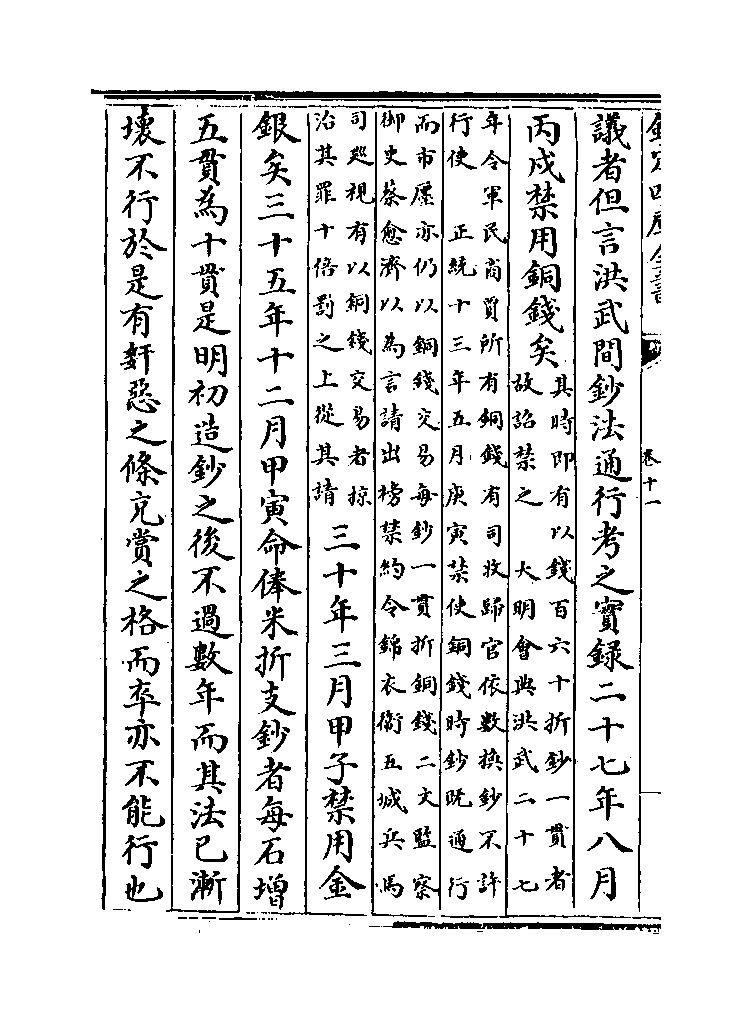 欽定四庫全書
卷十一
議者但言洪武間鈔法通行考之實録二十七年八月
丙戌禁用銅錢矣
其時即有以錢百六十折鈔一貫者
故詔禁之 大明會典洪武二十七
年令軍民商賈所有銅錢有司收歸官依數換鈔不許
行使 正統十三年五月庚寅禁使銅錢時鈔既通行
而市廛亦仍以銅錢交易每鈔一貫折銅錢二文監察
御史蔡愈濟以為言請出榜禁約令錦衣衛五城兵馬
司廵視有以銅錢交易者掠
治其罪十倍罰之上從其請
三十年三月甲子禁用金
銀矣三十五年十二月甲寅命俸米折支鈔者每石增
五貫為十貫是明初造鈔之後不過數年而其法已漸
壞不行於是有姧惡之條充賞之格而卒亦不能行也